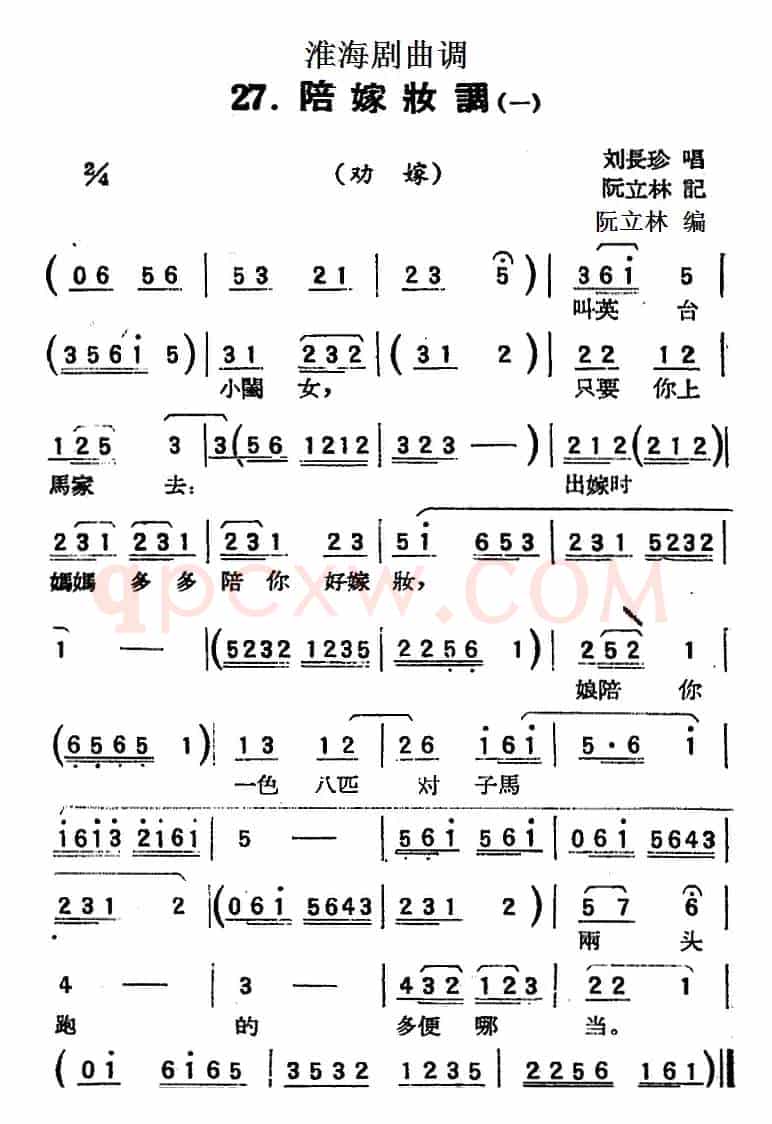 淮海剧曲调
27. 陪嫁妝調(一)
2/4 (劝 嫁) 刘長珍 唱
阮立林 記
阮立林 编
(06 56 | 53 21 | 23 5) | 361 5 |
叫英 台
(3561 5) | 31 232 | (31 2) | 22 12 |
小閨 女, 只要 你上
125 3 | 3(56 1212 | 323 —) | 212(212) ||
馬家 去: 出嫁时
231 231 | 231 23 | 51 653 | 231 5232 |
媽媽 多多 陪你 好嫁妝,
1 — |(5232 1235 | 2256 1) | 252 1 |
娘陪 你
(6565 1) | 13 12 | 26 161 | 5·6 1 |
一色 八匹 对 子馬
1613 2161 | 5 — | 561 561 | 061 5643 |
231 2 |(061 5643 | 231 2) | 57 6 |
兩 头
4 — | 3 — | 432 123 | 22 1 |
跑 的 多便 哪 当。
(01 6165 | 3532 1321 | 2256 161)||
qpcxw.COM